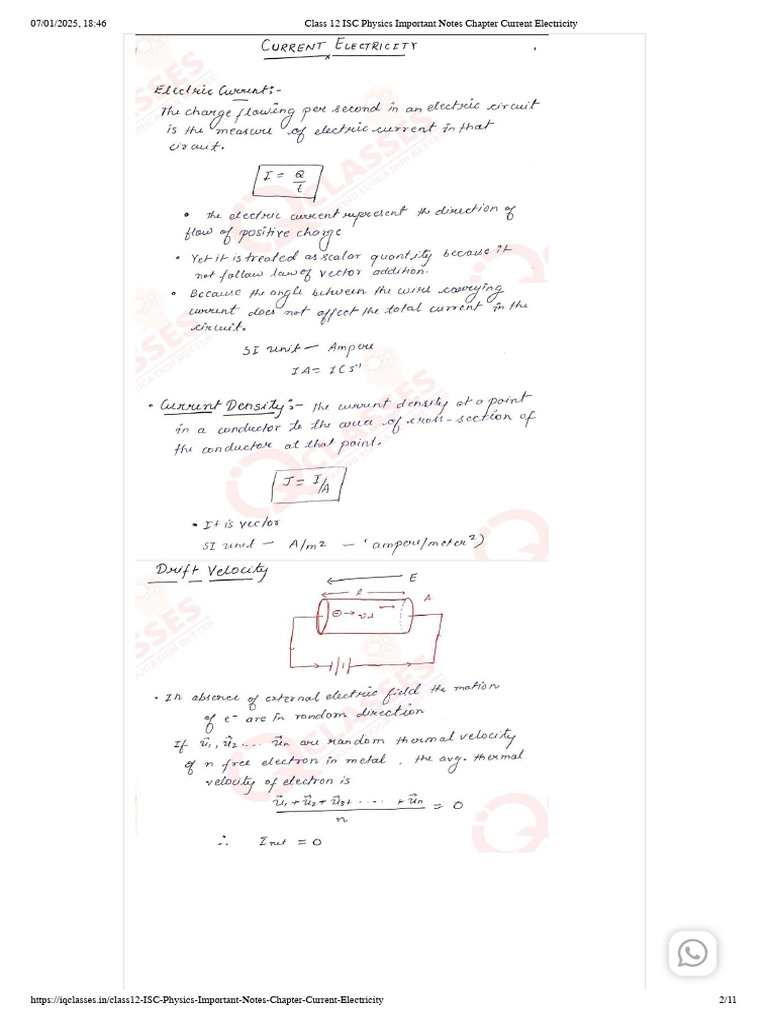 07/01/2025, 18:46 Class 12 ISC Physics Important Notes Chapter Current Electricity
CURRENT ELECTRICITY
Electric Current:-
The charge flowing per second in an electric circuit
is the measure of electric current in that
circuit.
I = Q/t
• The electric current represent the direction of
flow of positive charge
• Yet it is treated as scalar quantity because it
not follow law of vector addition.
• Because the angle between the wire carrying
current does not affect the total current in the
circuit.
SI unit — Ampere
1A = 1Cs⁻¹
• Current Density:- The current density at a point
in a conductor to the area of cross-section of
the conductor at that point.
J = I/A
• It is vector
SI unit — A/m² — 'ampere/meter²)
Drift Velocity
E
l
A
⊖→ vd
• In absence of external electric field the motion
of e⁻ are in random direction
If u⃗₁, u⃗₂ .... u⃗n are random thermal velocity
of n free electron in metal, the avg. thermal
velocity of electron is
u⃗₁ + u⃗₂ + u⃗₃+ ..... + u⃗n / n = 0
∴ I net = 0
https://iqclasses.in/class12-ISC-Physics-Important-Notes-Chapter-Current-Electricity 2/11